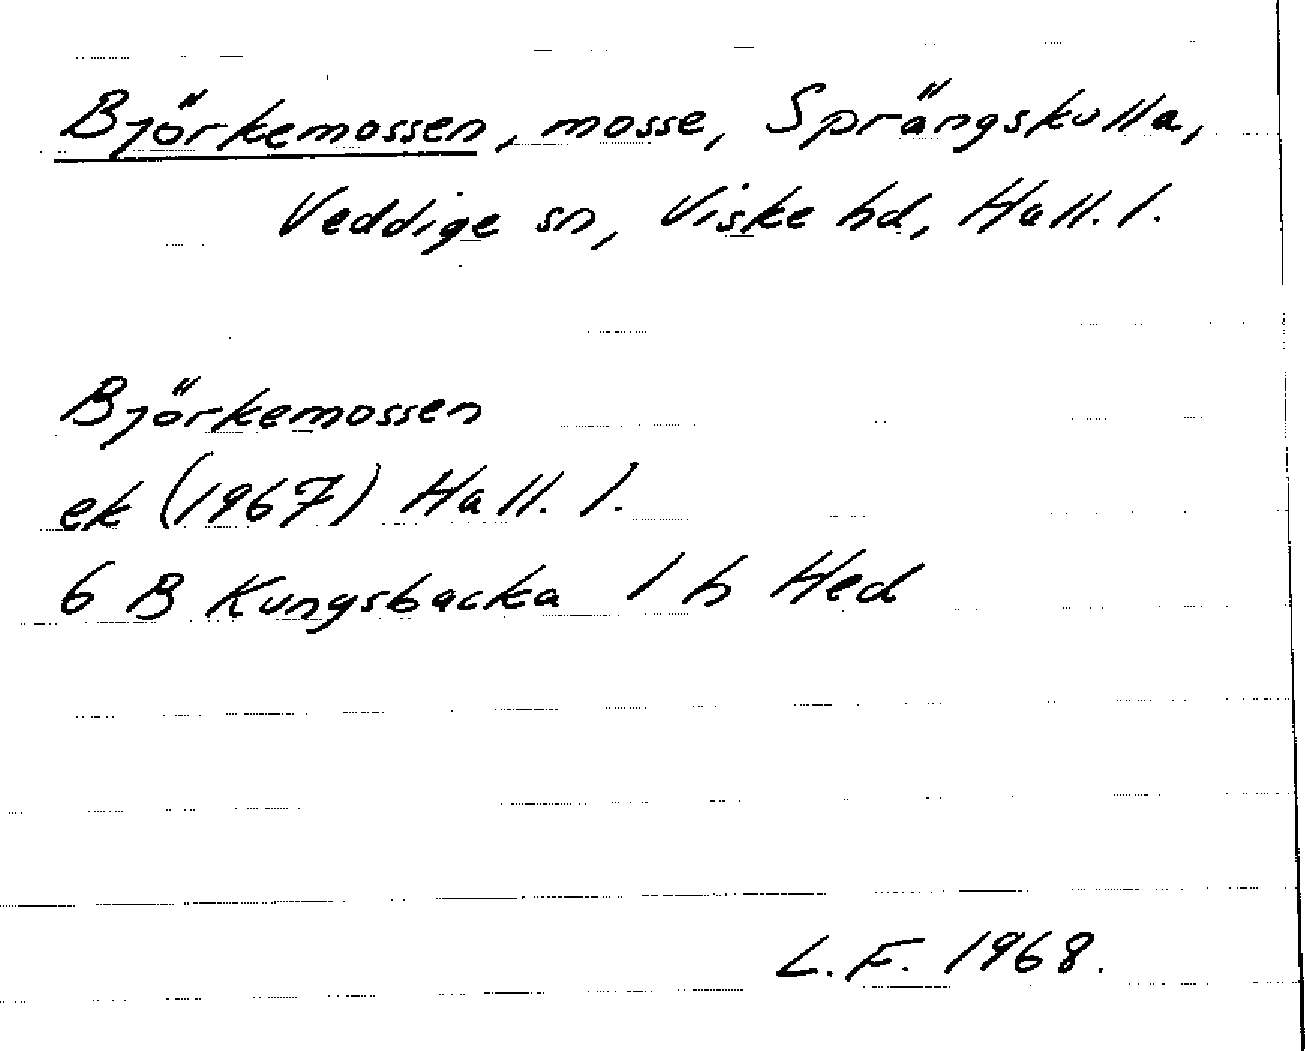 Björkemossen, mosse, Sprängskulla,
Veddige sn, Viske hd, Hall. l.
Björkemossen
ek (1967) Hall. l.
6 B Kungsbacka 1 h Hed
L.F. 1968.